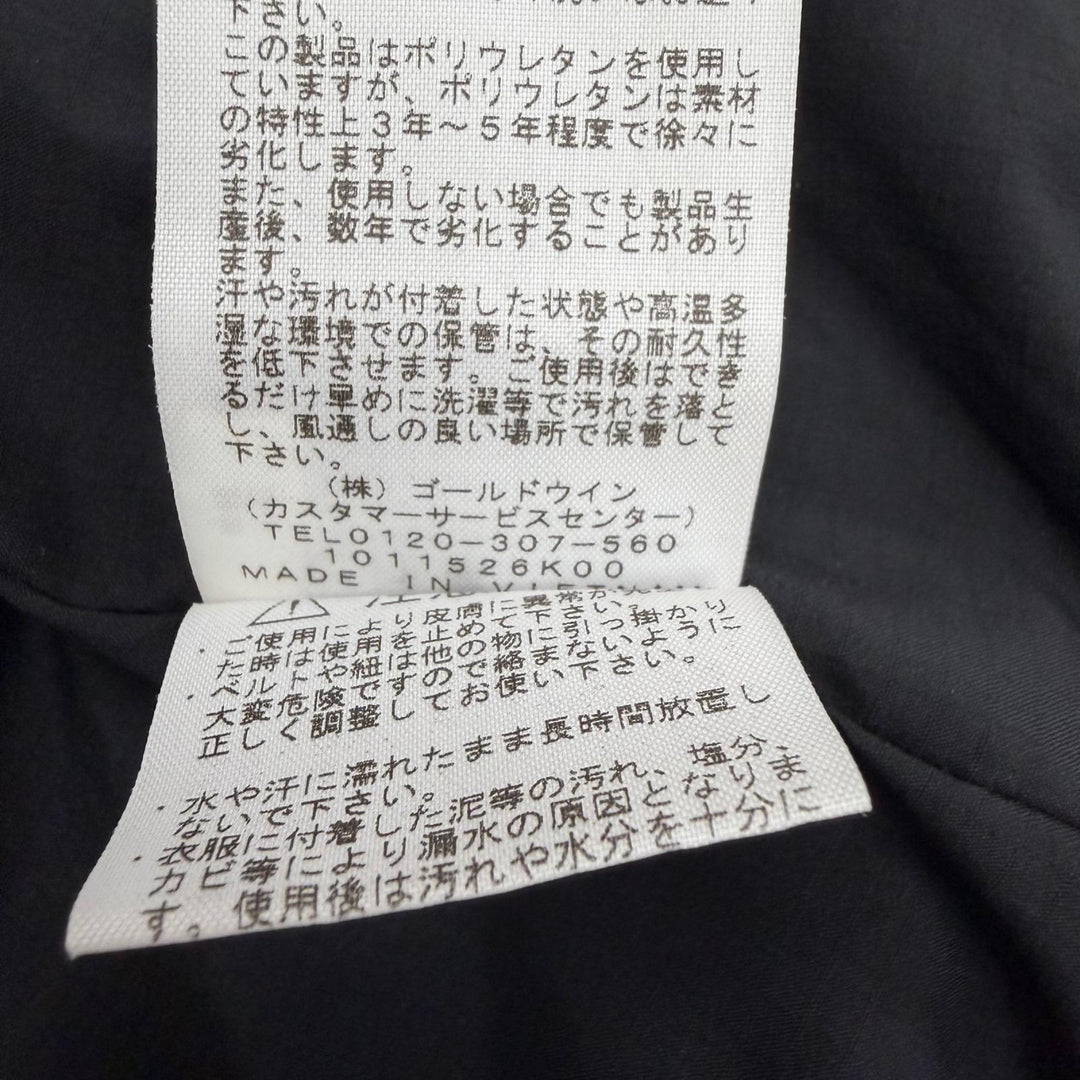 下さい。
この製品はポリウレタンを使用し
ていますが、ポリウレタンは素材
の特性上3年~5年程度で徐々に
劣化します。
また、使用しない場合でも製品生
産後、数年で劣化することがあり
ます。
汗や汚れが付着した状態や高温多
湿な環境での保管は、その耐久性
を低下させます。ご使用後はでき
るだけ単めに洗濯等で汚れを落とし
、風通しの良い場所で保管して
下さい。
(株)ゴールドウイン
(カスタマーサービスセンター)
TEL0120-307-560
1011526K00
MADE IN
ベルトや紐はすでお使い下さい。
大変危険です
正しく調整して
・水や汗に濡れたまま長時間放置し
ないで下さい。
・衣服等に付着した泥等の汚れ、塩分、
カビ等により漏水の原因となりま
す。使用後は汚れや水分を十分に